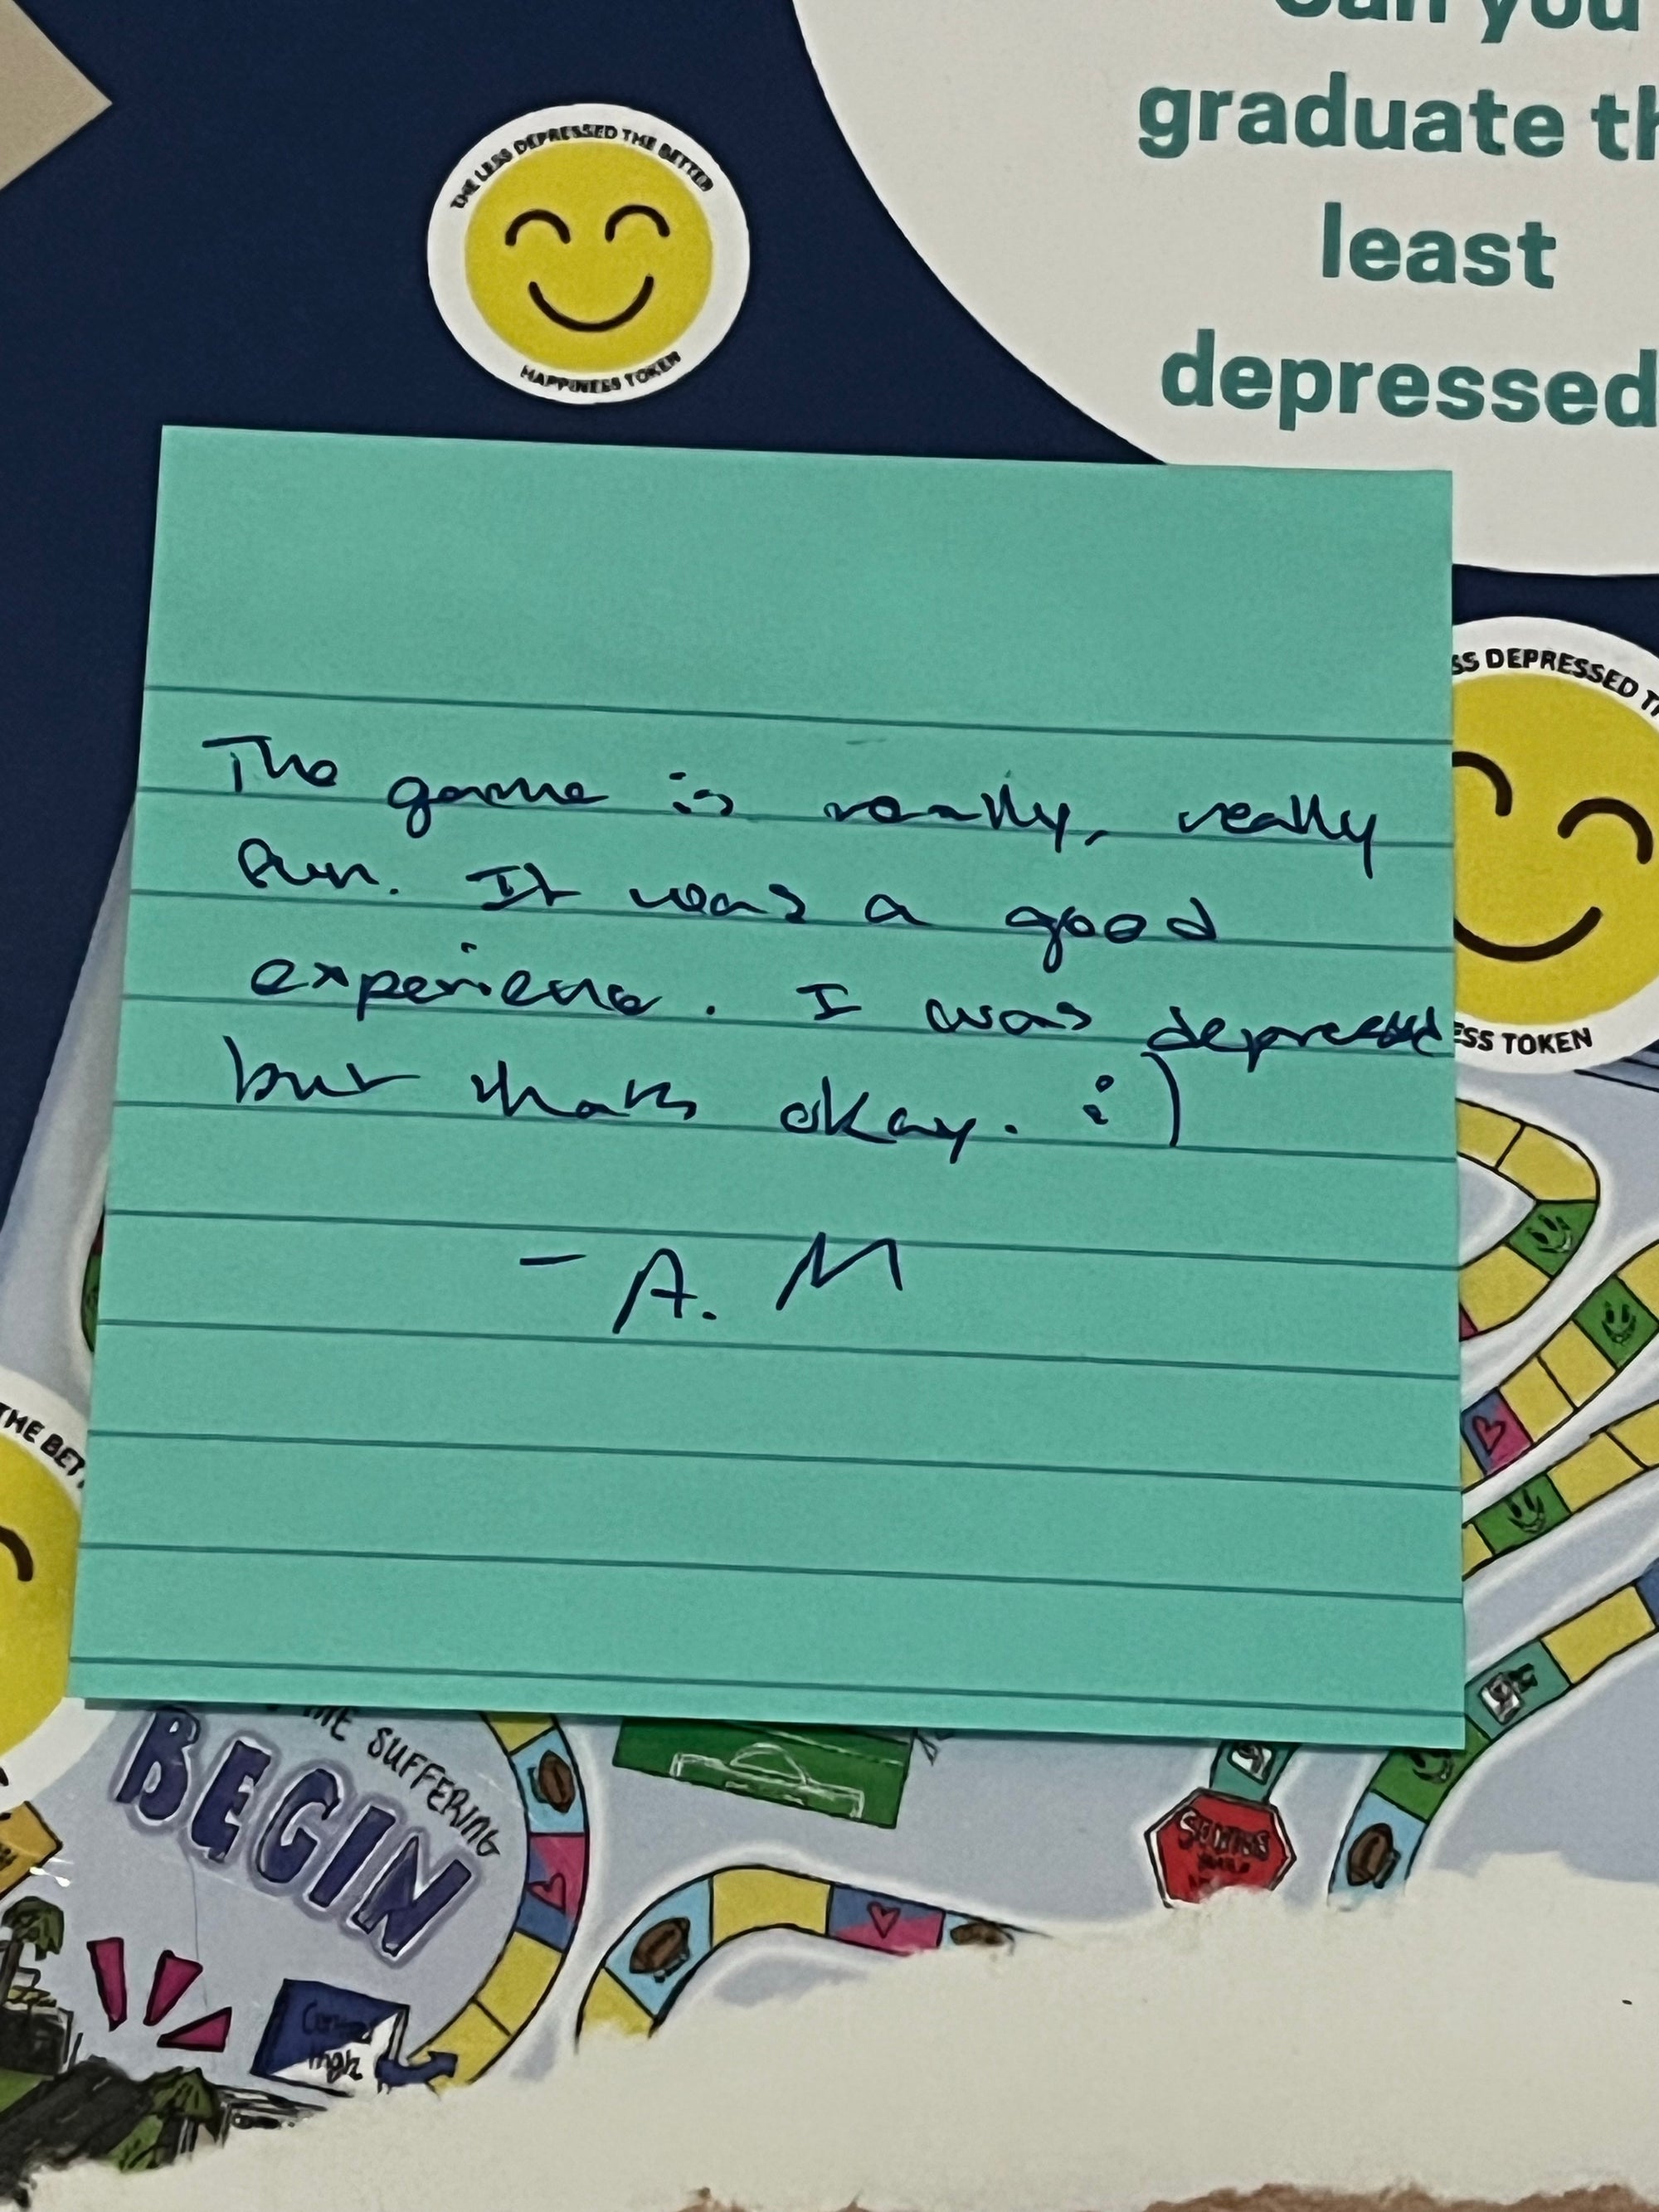 Can you
graduate th
least
depressed
THE LESS DEPRESSED THE BETTER
HAPPINESS TOKEN
The game is really, really
fun. It was a good
experience. I was depressed
but thats okay. :)
- A. M
SS DEPRESSED T
ESS TOKEN
THE BET
SUFFERING
BEGIN